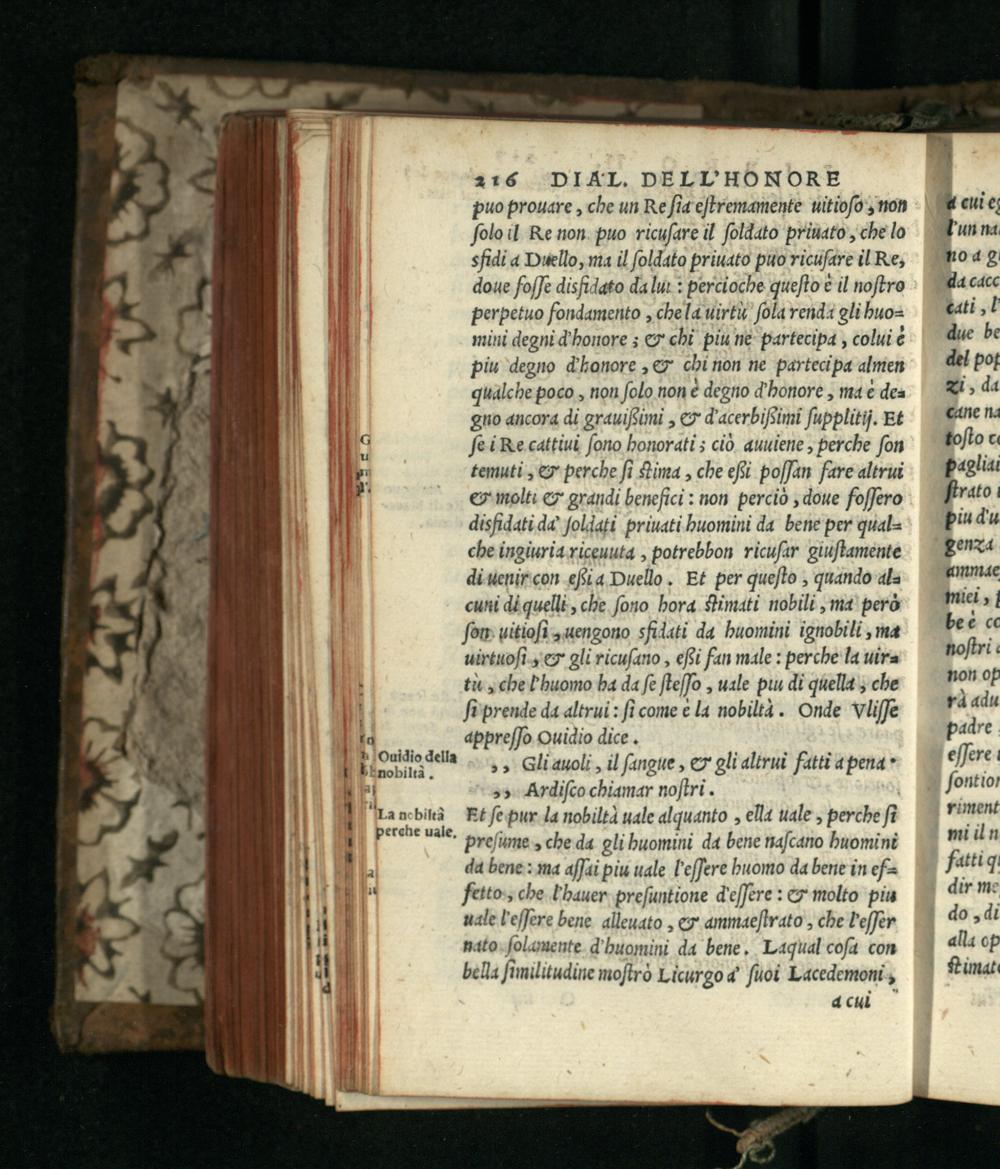 216 DIAL. DELL'HONORE
puo prouare, che un Re ſia eſtremamente uitioſo, non
ſolo il Re non puo ricuſare il ſoldato priuato, che lo
sfidi a Duello, ma il ſoldato priuato puo ricuſare il Re,
doue foſſe disfidato da lui : percioche queſto è il noſtro
perpetuo fondamento, che la uirtù ſola renda gli huo=
mini degni d'honore ; & chi piu ne partecipa, colui è
piu degno d'honore, & chi non ne partecipa almen
qualche poco, non ſolo non è degno d'honore, ma è de=
gno ancora di grauißimi, & d'acerbißimi ſupplitij. Et
ſe i Re cattiui ſono honorati ; ciò auuiene, perche ſon
temuti, & perche ſi ſtima, che eßi poſſan fare altrui
& molti & grandi benefici : non perciò, doue foſſero
disfidati da' ſoldati priuati huomini da bene per qual=
che ingiuria riceuuta, potrebbon ricuſar giuſtamente
di uenir con eßi a Duello. Et per queſto, quando al=
cuni di quelli, che ſono hora ſtimati nobili, ma però
ſon uitioſi, uengono sfidati da huomini ignobili, ma
uirtuoſi, & gli ricuſano, eßi fan male : perche la uir=
tù, che l'huomo ha da ſe ſteſſo, uale piu di quella, che
ſi prende da altrui : ſi come è la nobiltà. Onde Vliſſe
appreſſo Ouidio dice.
,, Gli auoli, il ſangue, & gli altrui fatti a pena
,, Ardiſco chiamar noſtri.
Et ſe pur la nobiltà uale alquanto, ella uale, perche ſi
preſume, che da gli huomini da bene naſcano huomini
da bene : ma aſſai piu uale l'eſſere huomo da bene in ef=
fetto, che l'hauer preſuntione d'eſſere : & molto piu
uale l'eſſere bene alleuato, & ammaeſtrato, che l'eſſer
nato ſolamente d'huomini da bene. Laqual coſa con
bella ſimilitudine moſtrò Licurgo a' ſuoi Lacedemoni,
a cui
Ouidio della
nobiltà.
La nobiltà
perche uale.
a cui
l'un
no a
da
cati, l'
due
del
zi, da
cane
toſto
ſtrato
piu d'u
genza
miei,
be è
noſtri
non
rà
padre,
eſſere
mi il
fatti
dir
do, di
alla